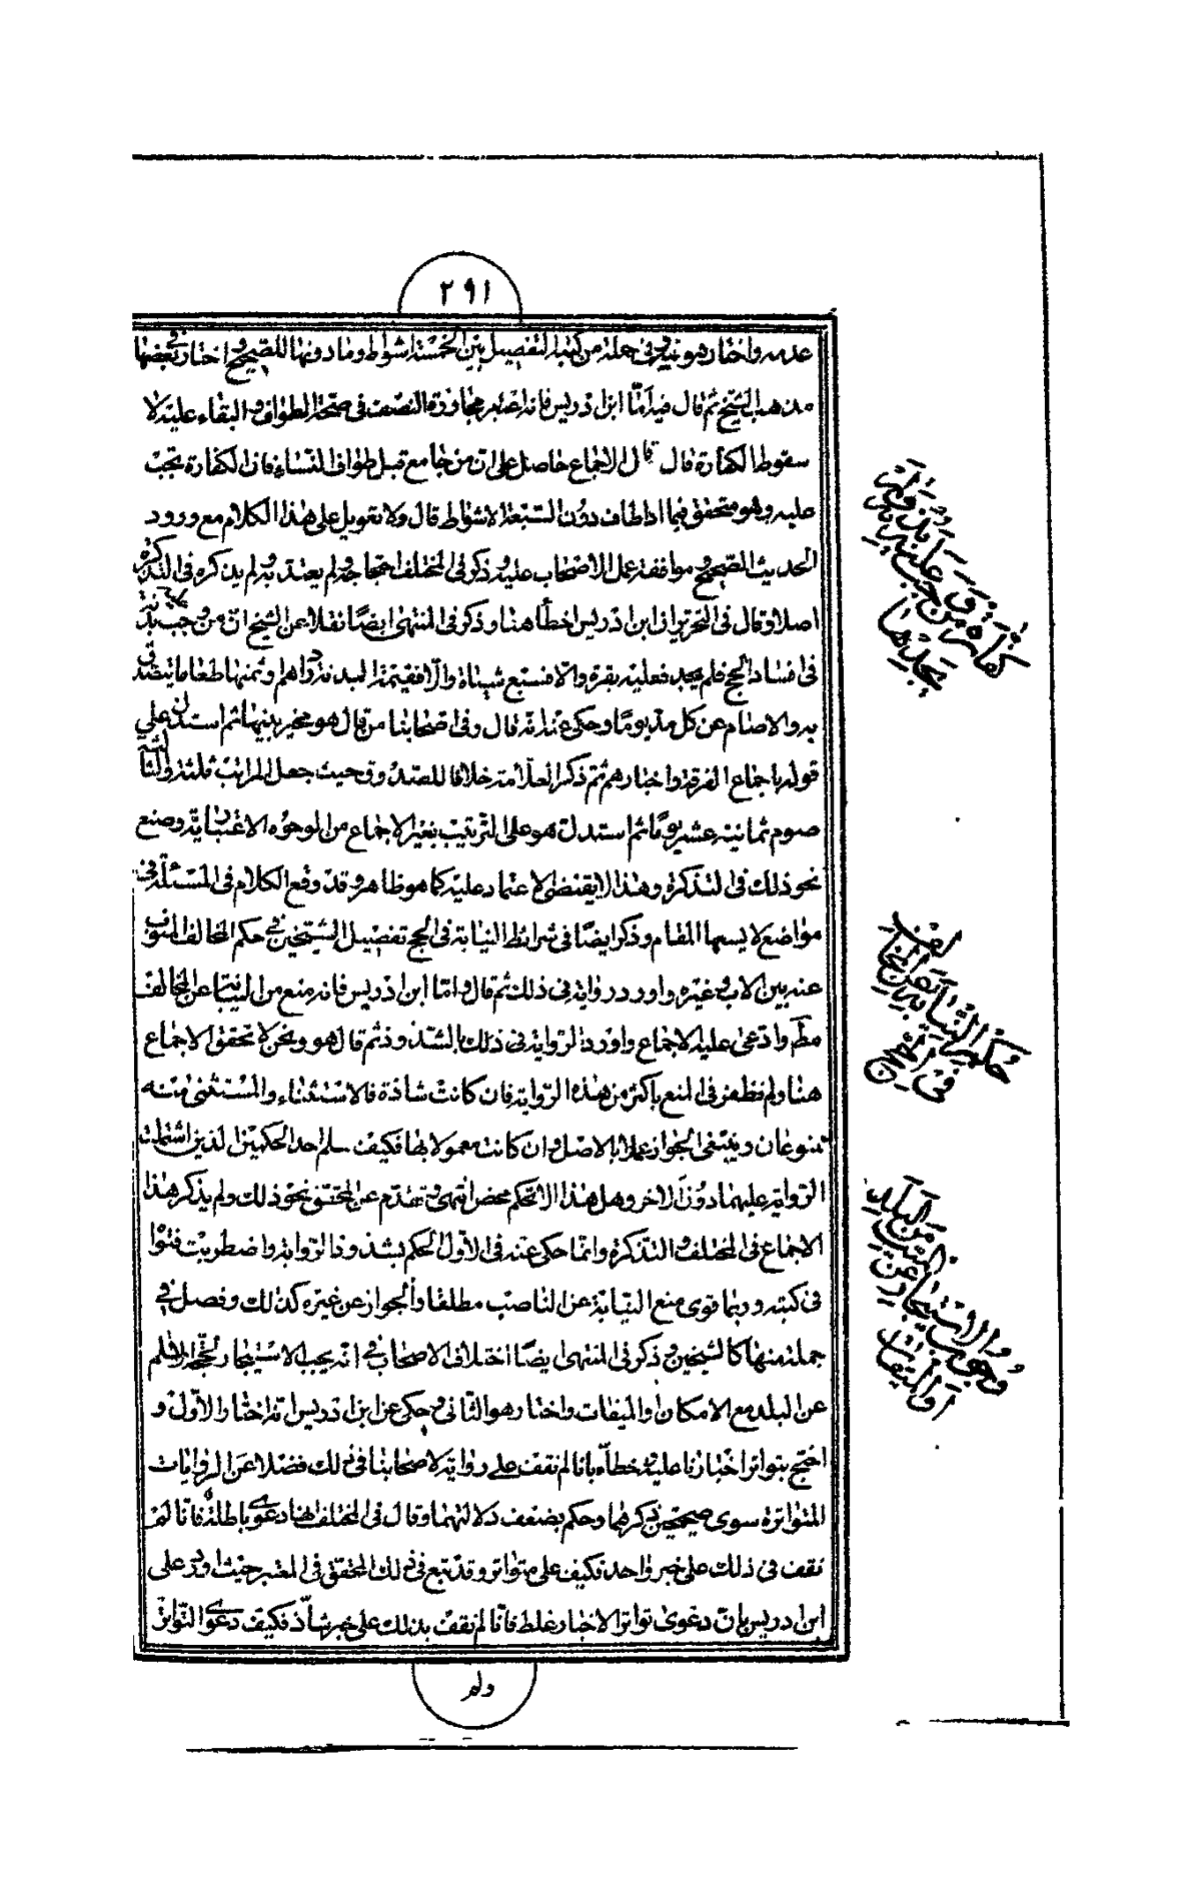 ٢٩١
عدمه واختار هو فيه وفى جملة من كتبه التفصيل بين الخمسة اشواط وما دونها للصحيح واختار فى بعضها
مذهب الشيخ ثم قال فيه امّا ابن ادريس فانه اعتبر مجاوزة النصف فى صحّة الطواف والبناء عليه لا
سقوط الكفارة قال قال الاجماع حاصل على ان من جامع قبل طواف النساء فان الكفارة تجب
عليه وهو متحقق فيما اذا طاف دون السّبعة الاشواط قال ولا تعويل على هذا الكلام مع ورود
الحديث الصحيح وموافقة عمل الاصحاب عليه وذكر فى المختلف احتجاجه ولم يعتد به ولم يذكره فى التذكرة
اصلا وقال فى التحرير ان ابن ادريس اخطأ هنا وذكر فى المنتهى ايضًا نقلا عن الشيخ ان من وجب عليه بدنة
فى افساد الحج فلم يجد فعليه بقرة والّا فسبع شياة والّا فقيمة البدنة دراهم وثمنها طعاما يتصدق
به والا صام عن كل مدّ يومًا وحكى عنه انه قال وفى اصحابنا من قال هو مخير بينها ثم استدل على
قوله باجماع الفرقة واخبارهم ثم ذكر العلّامة خلافا للصدوق حيث جعل المراتب ثلثة والثالثة
صوم ثمانية عشر يومًا ثم استدل هو على الترتيب بغير الاجماع من الوجوه الاعتبارية وصنع
نحو ذلك فى التذكرة وهذا لا يقتضى الاعتماد عليه كما هو ظاهر وقد وقع الكلام فى المسئلة فى
مواضع لا يسعها المقام وذكر ايضًا فى شرائط النيابة فى الحج تفصيل الشيخين فى حكم المخالف المنوب
عنه بين الاب وغيره واورد رواية فى ذلك ثم قال وامّا ابن ادريس فانه منع من النيابة عن المخالف
مط وادعى عليه الاجماع واورد الرواية فى ذلك بالشذوذ ثم قال هو ونحن لا نحقق الاجماع
هنا ولم نظفر فى المنع باكثر من هذه الرواية فان كانت شاذة فالاستثناء والمستثنى منه
ممنوعان ويبقى الجواز عملا بالاصل وان كانت معمولا بها فكيف سلم احد الحكمين الذين اشتملت
الرواية عليهما دون الاخر وهل هذا الا تحكم محض انتهى وتقدم عن المحقق نحو ذلك ولم يذكر هذا
الاجماع فى المختلف والتذكرة وانما حكى عنه فى الاوّل الحكم بشذوذ الرواية واضطربت فتواه
فى كتبه وربما قوى منع النيابة عن الناصب مطلقا والجواز عن غيره كذلك وفصل فى
جملة منها كالشيخين وذكر فى المنتهى ايضًا اختلاف الاصحاب فى انه يجب الاستيجار لحجة الاسلام
عن البلد مع الامكان او الميقات واختار هو الثانى وحكى عن ابن ادريس انه اختار الاوّل و
احتج بتواتر اخبارنا عليه وخطأه بانا لم نقف على رواية لاصحابنا فى ذلك فضلا عن الروايات
المتواترة سوى صحيحين ذكرهما وحكم بضعف دلالتهما وقال فى المختلف هنا دعوى باطلة فانا لم
نقف فى ذلك على خبر واحد فكيف على متواتر وقد تبع فى ذلك المحقق فى المعتبر حيث اورد على
ابن ادريس بان دعوى تواتر الاخبار غلط فانا لم نقف بذلك على خبر شاذ فكيف دعوى التواتر
ولم
كفارة من وجب عليه بدنة ولم يجدها
حكم النيابة عن المخالف فى الحج
وجوب الاستيجار عن من البلد او الميقات